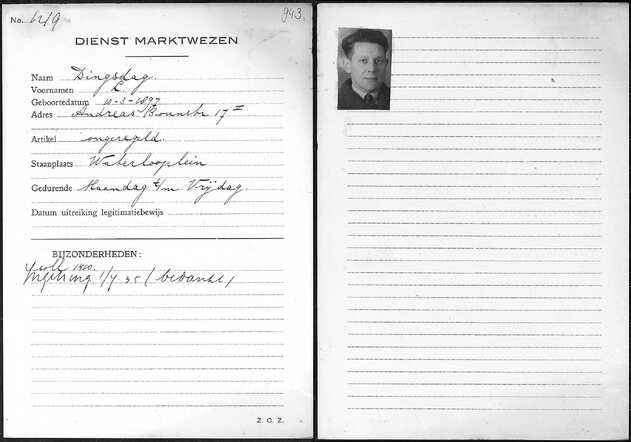 No. 1219
943.
DIENST MARKTWEZEN
Naam Dingsdag.
Voornamen L.
Geboortedatum 10-3-1897
Adres Andreas Bonnstr 17 II
Artikel ongeregeld.
Staanplaats Waterlooplein
Gedurende Maandag t/m Vrijdag
Datum uitreiking legitimatiebewijs
BIJZONDERHEDEN:
volk 1910.
1/7 35 (bedankt)
Z. O. Z.